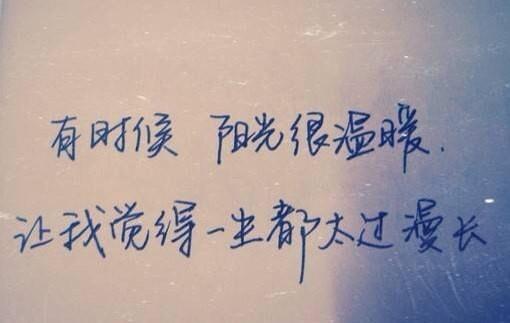 有时候 阳光很温暖.
让我觉得一尘都太过漫长